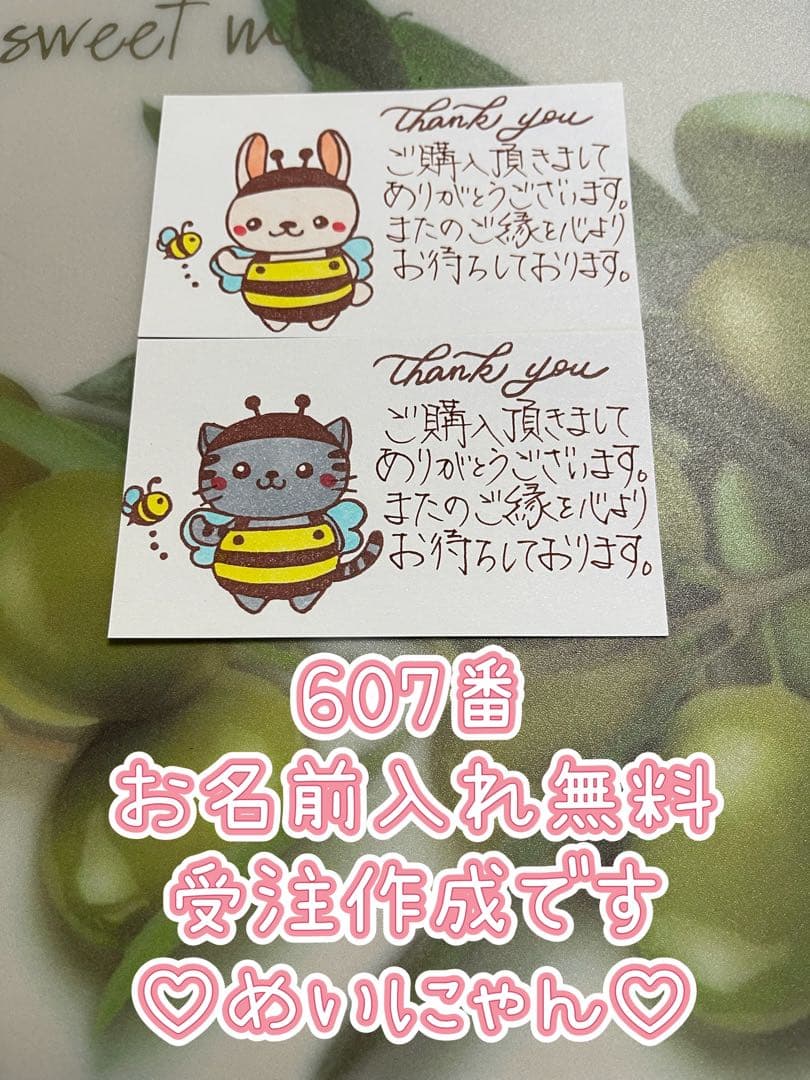 sweet
Thank you
ご購入頂きまして
ありがとうございます。
またのご縁を心より
お待ちしております。
Thank you
ご購入頂きまして
ありがとうございます。
またのご縁を心より
お待ちしております。
607番
お名前入れ無料
受注作成です
♡めいにゃん♡